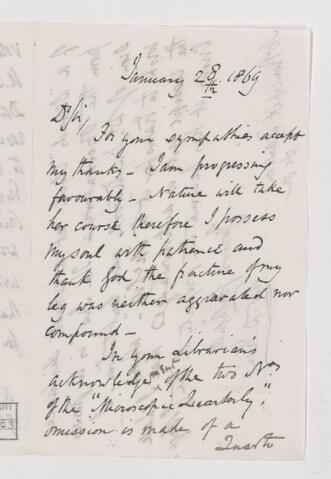 January 28th 1869
Dr Sir
For your sympathies accept
my thanks - I am progressing
favourably - Nature will take
her course, therefore I possess
my soul with patience and
thank God the fracture of my
leg was neither aggravated nor
compound -
In your Librarian's
acknowledgement of the two Nos
of the "Microscopic Quarterly".
omission is make of a
Quarto